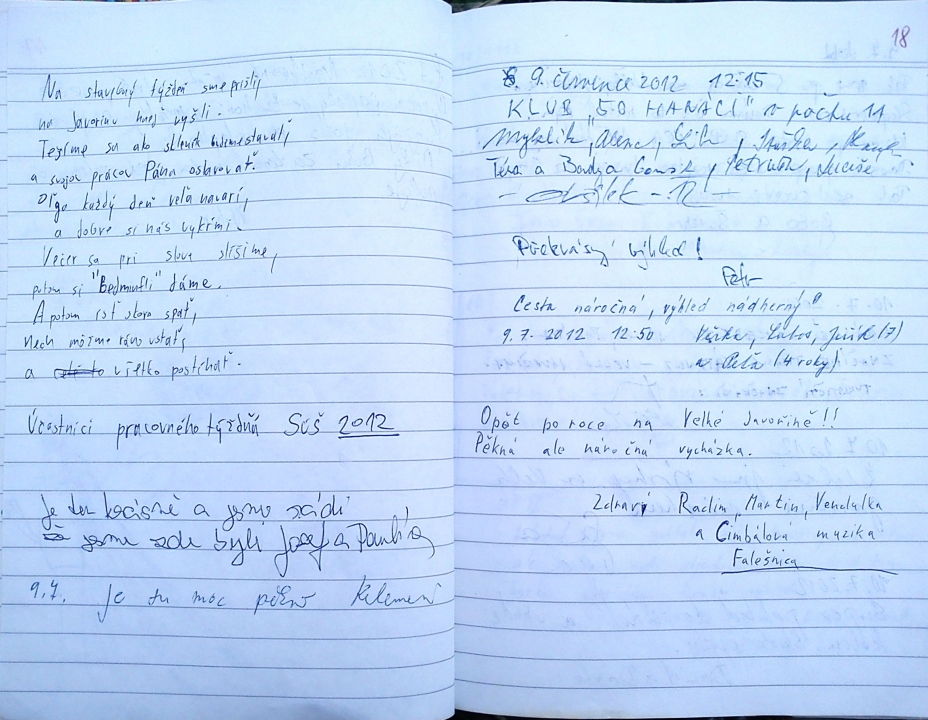 Na stavebný týždeň sme prišli,
na Javorinu hneď vyšli.
Tešíme sa ako skleník
a svojou prácou Pána oslavovať.
Oľga každý deň veľa navarí,
a dobre si nás vykŕmi.
Večer sa pri slove stíšime,
potom si "Bedminfli" dáme.
A potom ísť skoro spať,
nech môžme ráno vstať,
a všetko postíhať.
Účastníci pracovného týždňa SúŠ 2012
Je tu krásně a jsme rádi
že jsme zde byli Josef a Pavlína
9.7. Je tu moc pěkně Klemeni
18
9. července 2012 12:15
KLUB "50 HANÁCI" v počtu 11
Alena,
Téra a Bonďa Petruša, Lucie
Překrásný výhled!
Petr
Cesta náročná, výhled nádherný!
9.7. 2012 12:50 Verka, Luboš, Jiřík (7)
a Péťa (4 roky)
Opět po roce na Velké Javořině!!
Pěkná ale náročná vycházka.
Zdraví Radim, Martin, Vendulka
a Cimbálová muzika
Falešnica